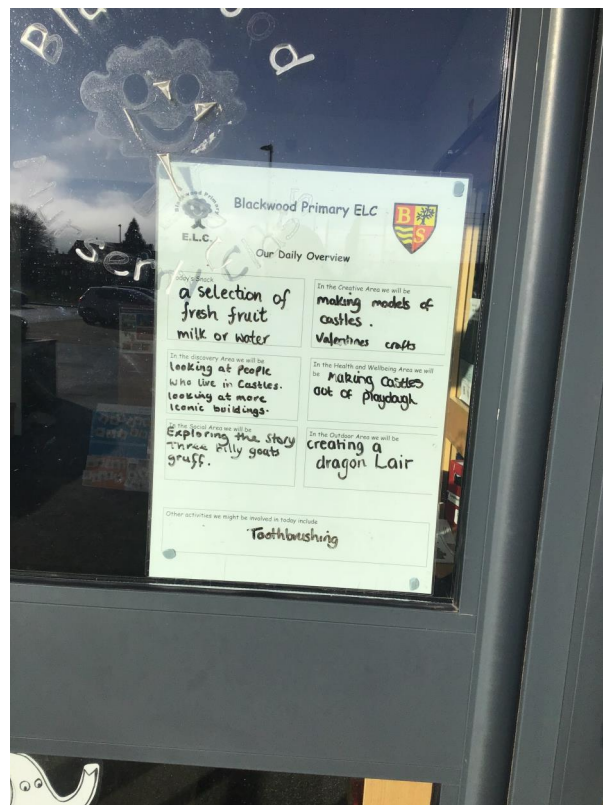 Blackwood Primary
E.L.C.
Blackwood Primary ELC
B
S
Our Daily Overview
Today's Snack
a selection of
fresh fruit
milk or water
In the Creative Area we will be
making models of
castles.
Valentines crafts
In the discovery Area we will be
looking at People
who live in Castles.
looking at more
Iconic buildings.
In the Health and Wellbeing Area we will
be making castles
out of playdough
In the Social Area we will be
Exploring the story
Three Billy goats
gruff.
In the Outdoor Area we will be
creating a
dragon Lair
Other activities we might be involved in today include
Toothbrushing